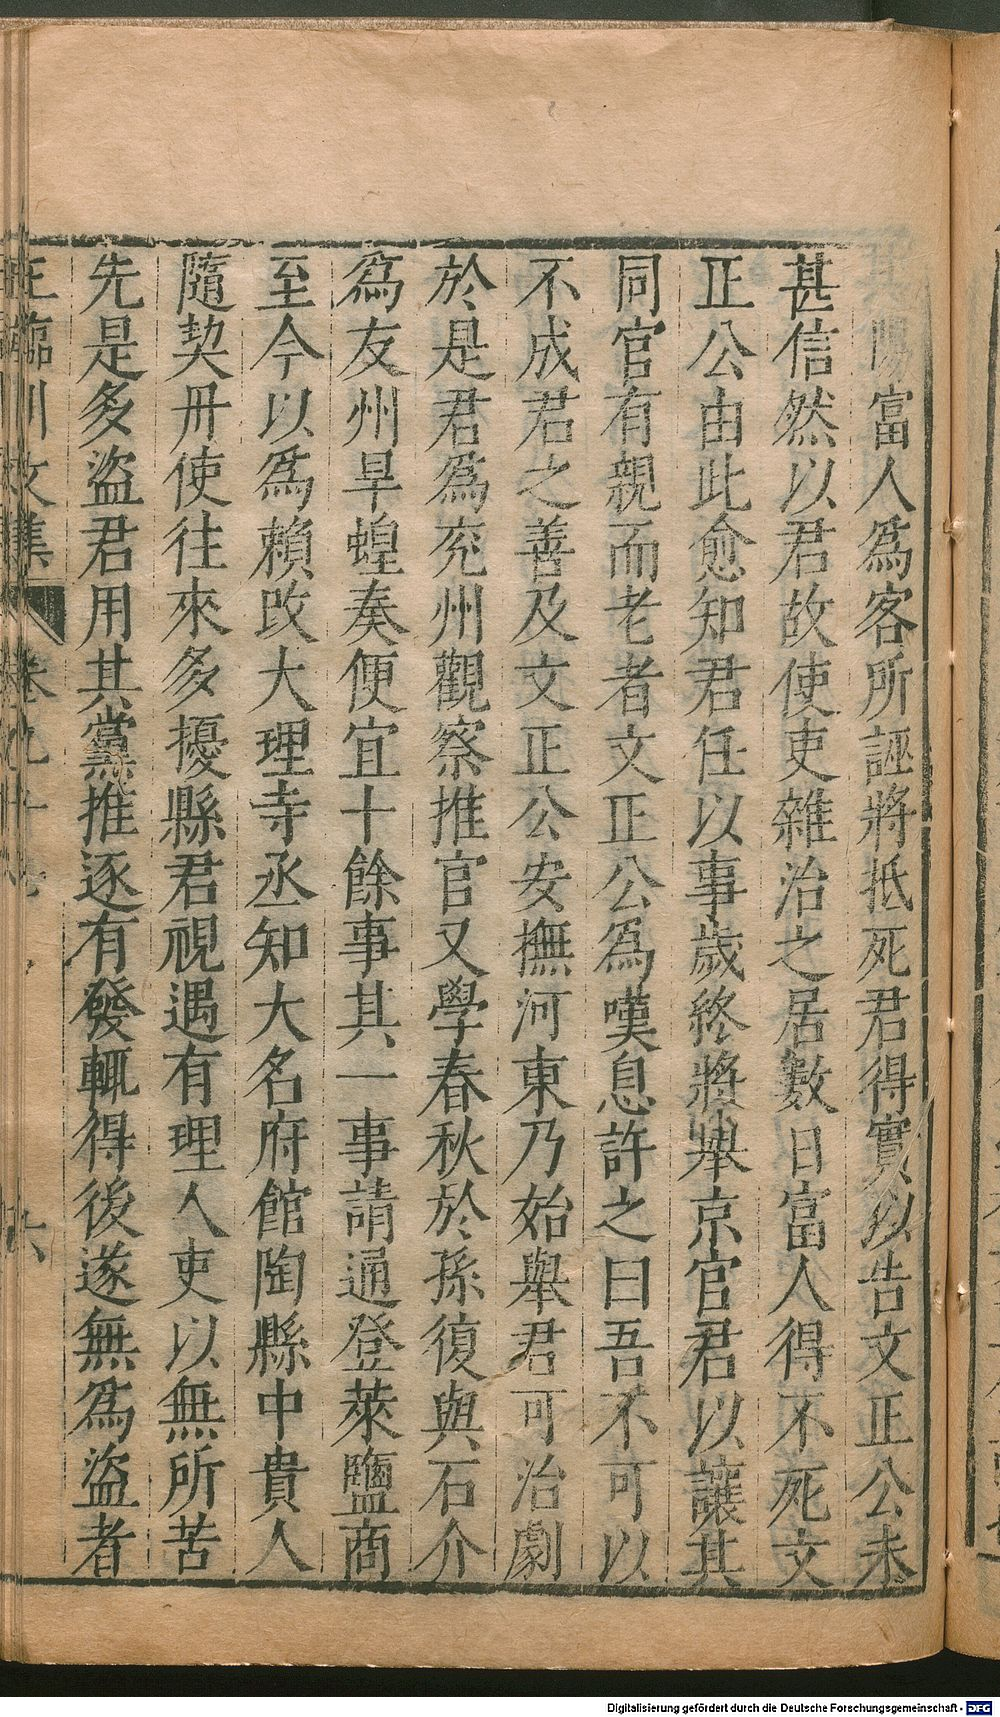 陽富人爲客所誣將抵死君得實以告文正公未
甚信然以君故使吏雜治之居數日富人得不死文
正公由此愈知君任以事歲終將舉京官君以讓其
同官有親而老者文正公爲嘆息許之曰吾不可以
不成君之善及文正公安撫河東乃始舉君可治劇
於是君爲兖州觀察推官又學春秋於孫復與石介
爲友州旱蝗奏便宜十餘事其一事請通登萊鹽商
至今以爲賴改大理寺丞知大名府館陶縣中貴人
隨契丹使往來多擾縣君視遇有理人吏以無所苦
先是多盜君用其黨推逐有發輒得後遂無爲盜者
王臨川文集 卷九十 六
Digitalisierung gefördert durch die Deutsche Forschungsgemeinschaft - DFG